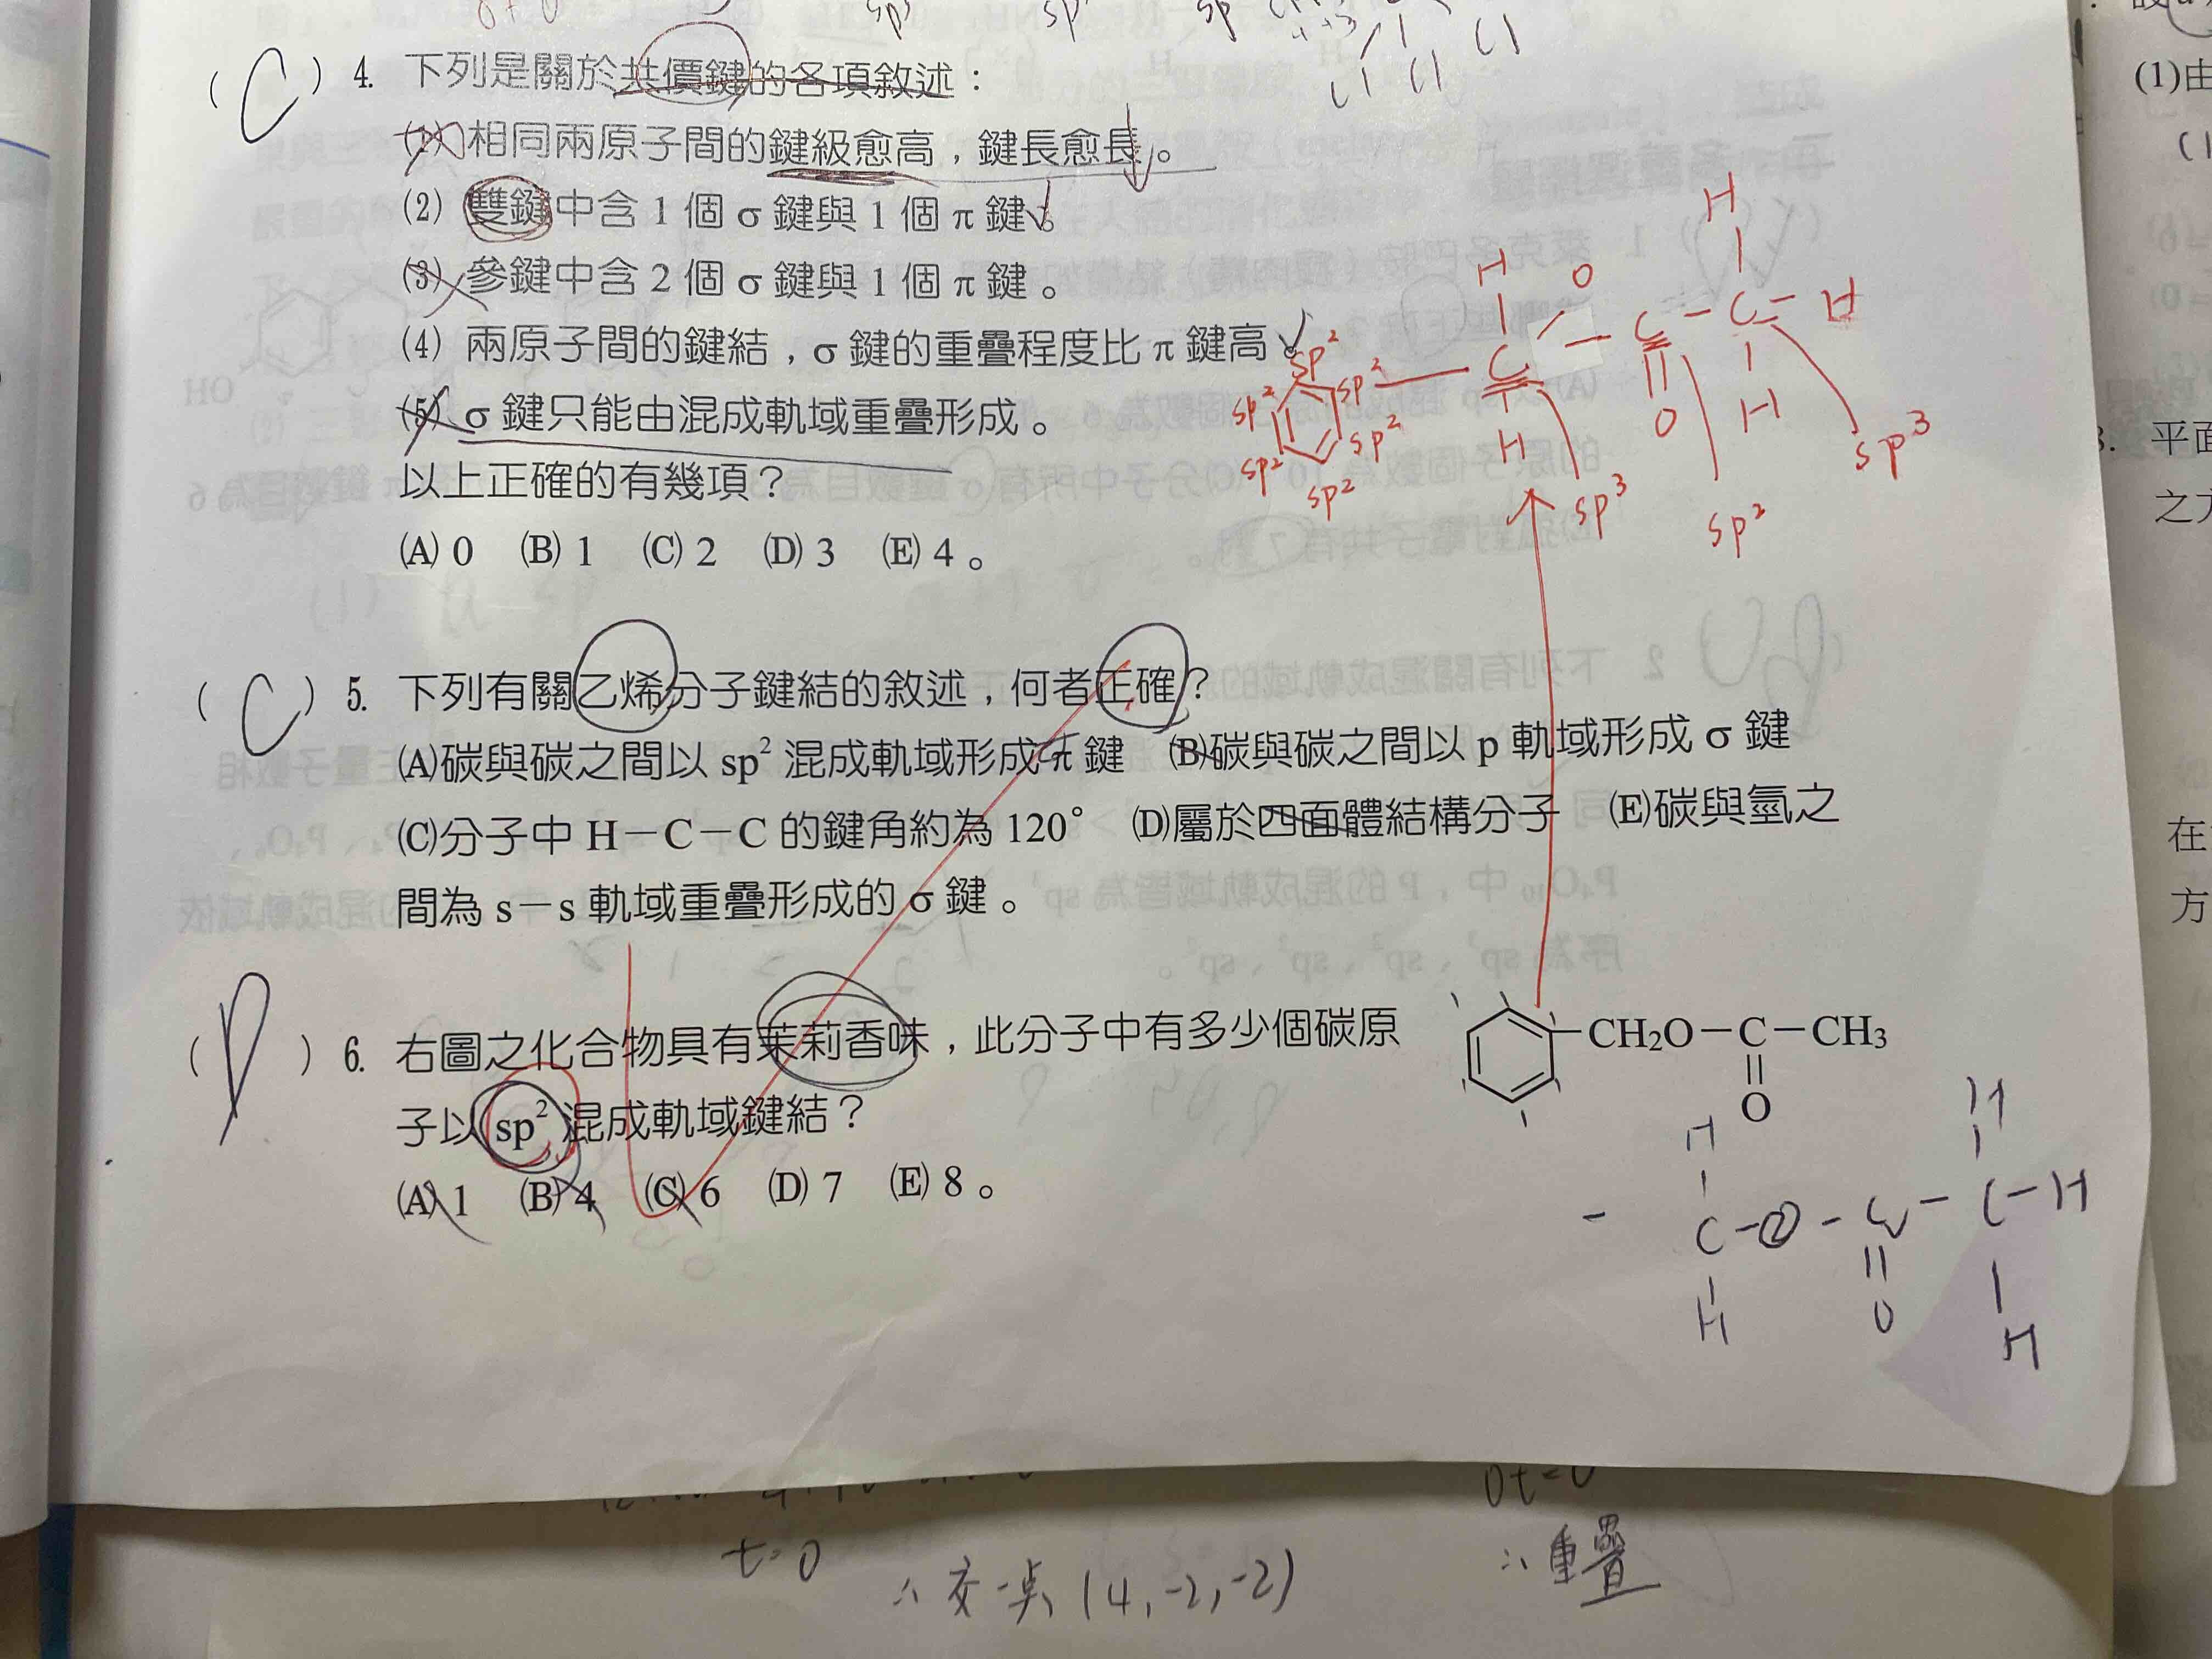 sp³ sp sp
Cl Cl Cl
(C) 4. 下列是關於共價鍵的各項敘述：
(1) 相同兩原子間的鍵級愈高，鍵長愈長。
(2) 雙鍵中含 1 個 σ 鍵與 1 個 π 鍵。
(3) 參鍵中含 2 個 σ 鍵與 1 個 π 鍵。
(4) 兩原子間的鍵結，σ 鍵的重疊程度比 π 鍵高。
(5) σ 鍵只能由混成軌域重疊形成。
以上正確的有幾項？
(A) 0 (B) 1 (C) 2 (D) 3 (E) 4。
H
H O C－C－H
sp² sp² C
sp² H O H
sp² sp² sp² sp³ sp² sp³
(C) 5. 下列有關乙烯分子鍵結的敘述，何者正確？
(A)碳與碳之間以 sp² 混成軌域形成 π 鍵 (B)碳與碳之間以 p 軌域形成 σ 鍵
(C)分子中 H－C－C 的鍵角約為 120° (D)屬於四面體結構分子 (E)碳與氫之
間為 s－s 軌域重疊形成的 σ 鍵。
(D) 6. 右圖之化合物具有茉莉香味，此分子中有多少個碳原
子以 sp² 混成軌域鍵結？
(A) 1 (B) 4 (C) 6 (D) 7 (E) 8。
CH₂O－C－CH₃
O
H H
－ C－O－C－C－H
H O H
t=0
∴交一點 (4,-2,-2)
0t=0
∴重疊
(1)由
平面
之方
在
方